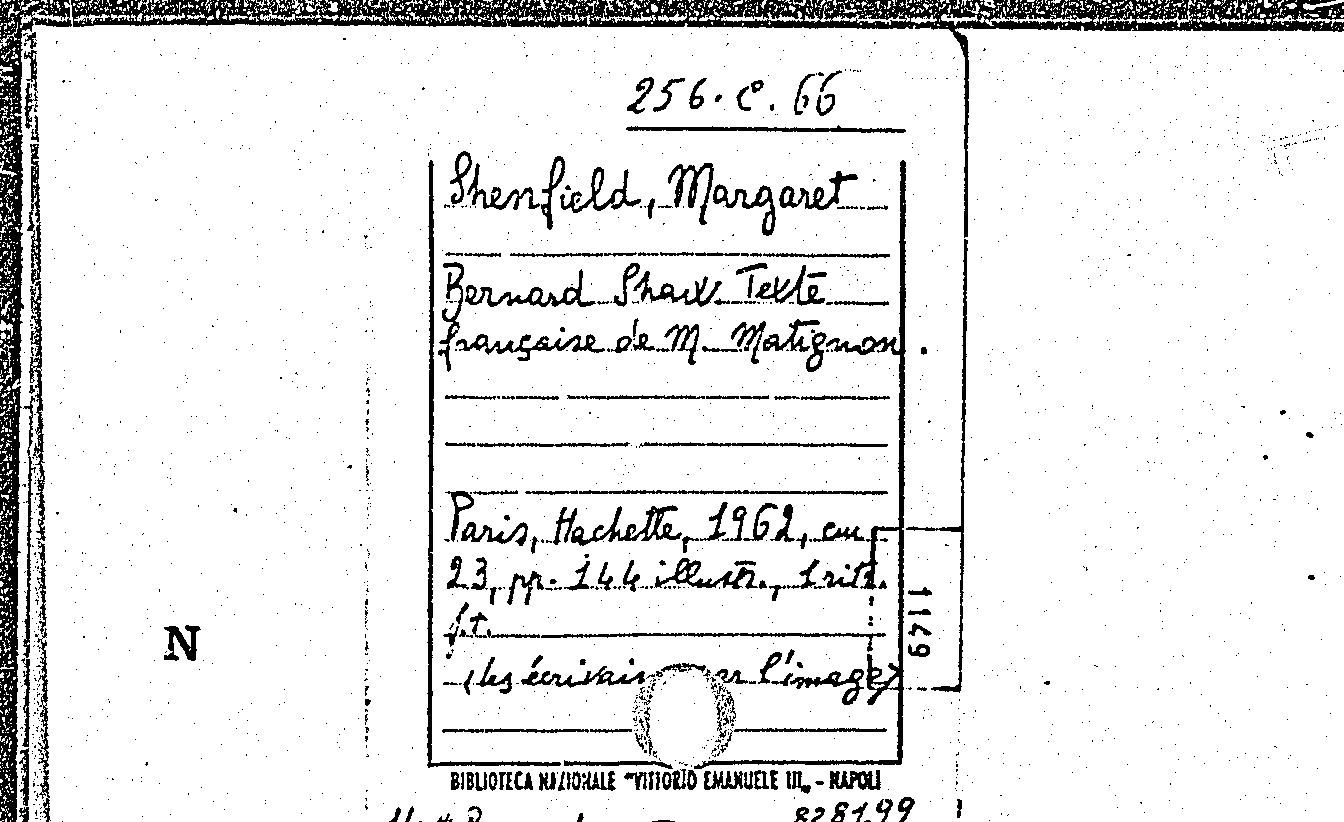 256.C.66
Shenfield, Margaret
Bernard Shaw. Texte
française de M. Matignon.
Paris, Hachette, 1962, cm
23, pp. 144 illustr., 1 ritr.
f.t.
(les écrivains par l'image)
1149
N
BIBLIOTECA NAZIONALE "VITTORIO EMANUELE III„ - NAPOLI